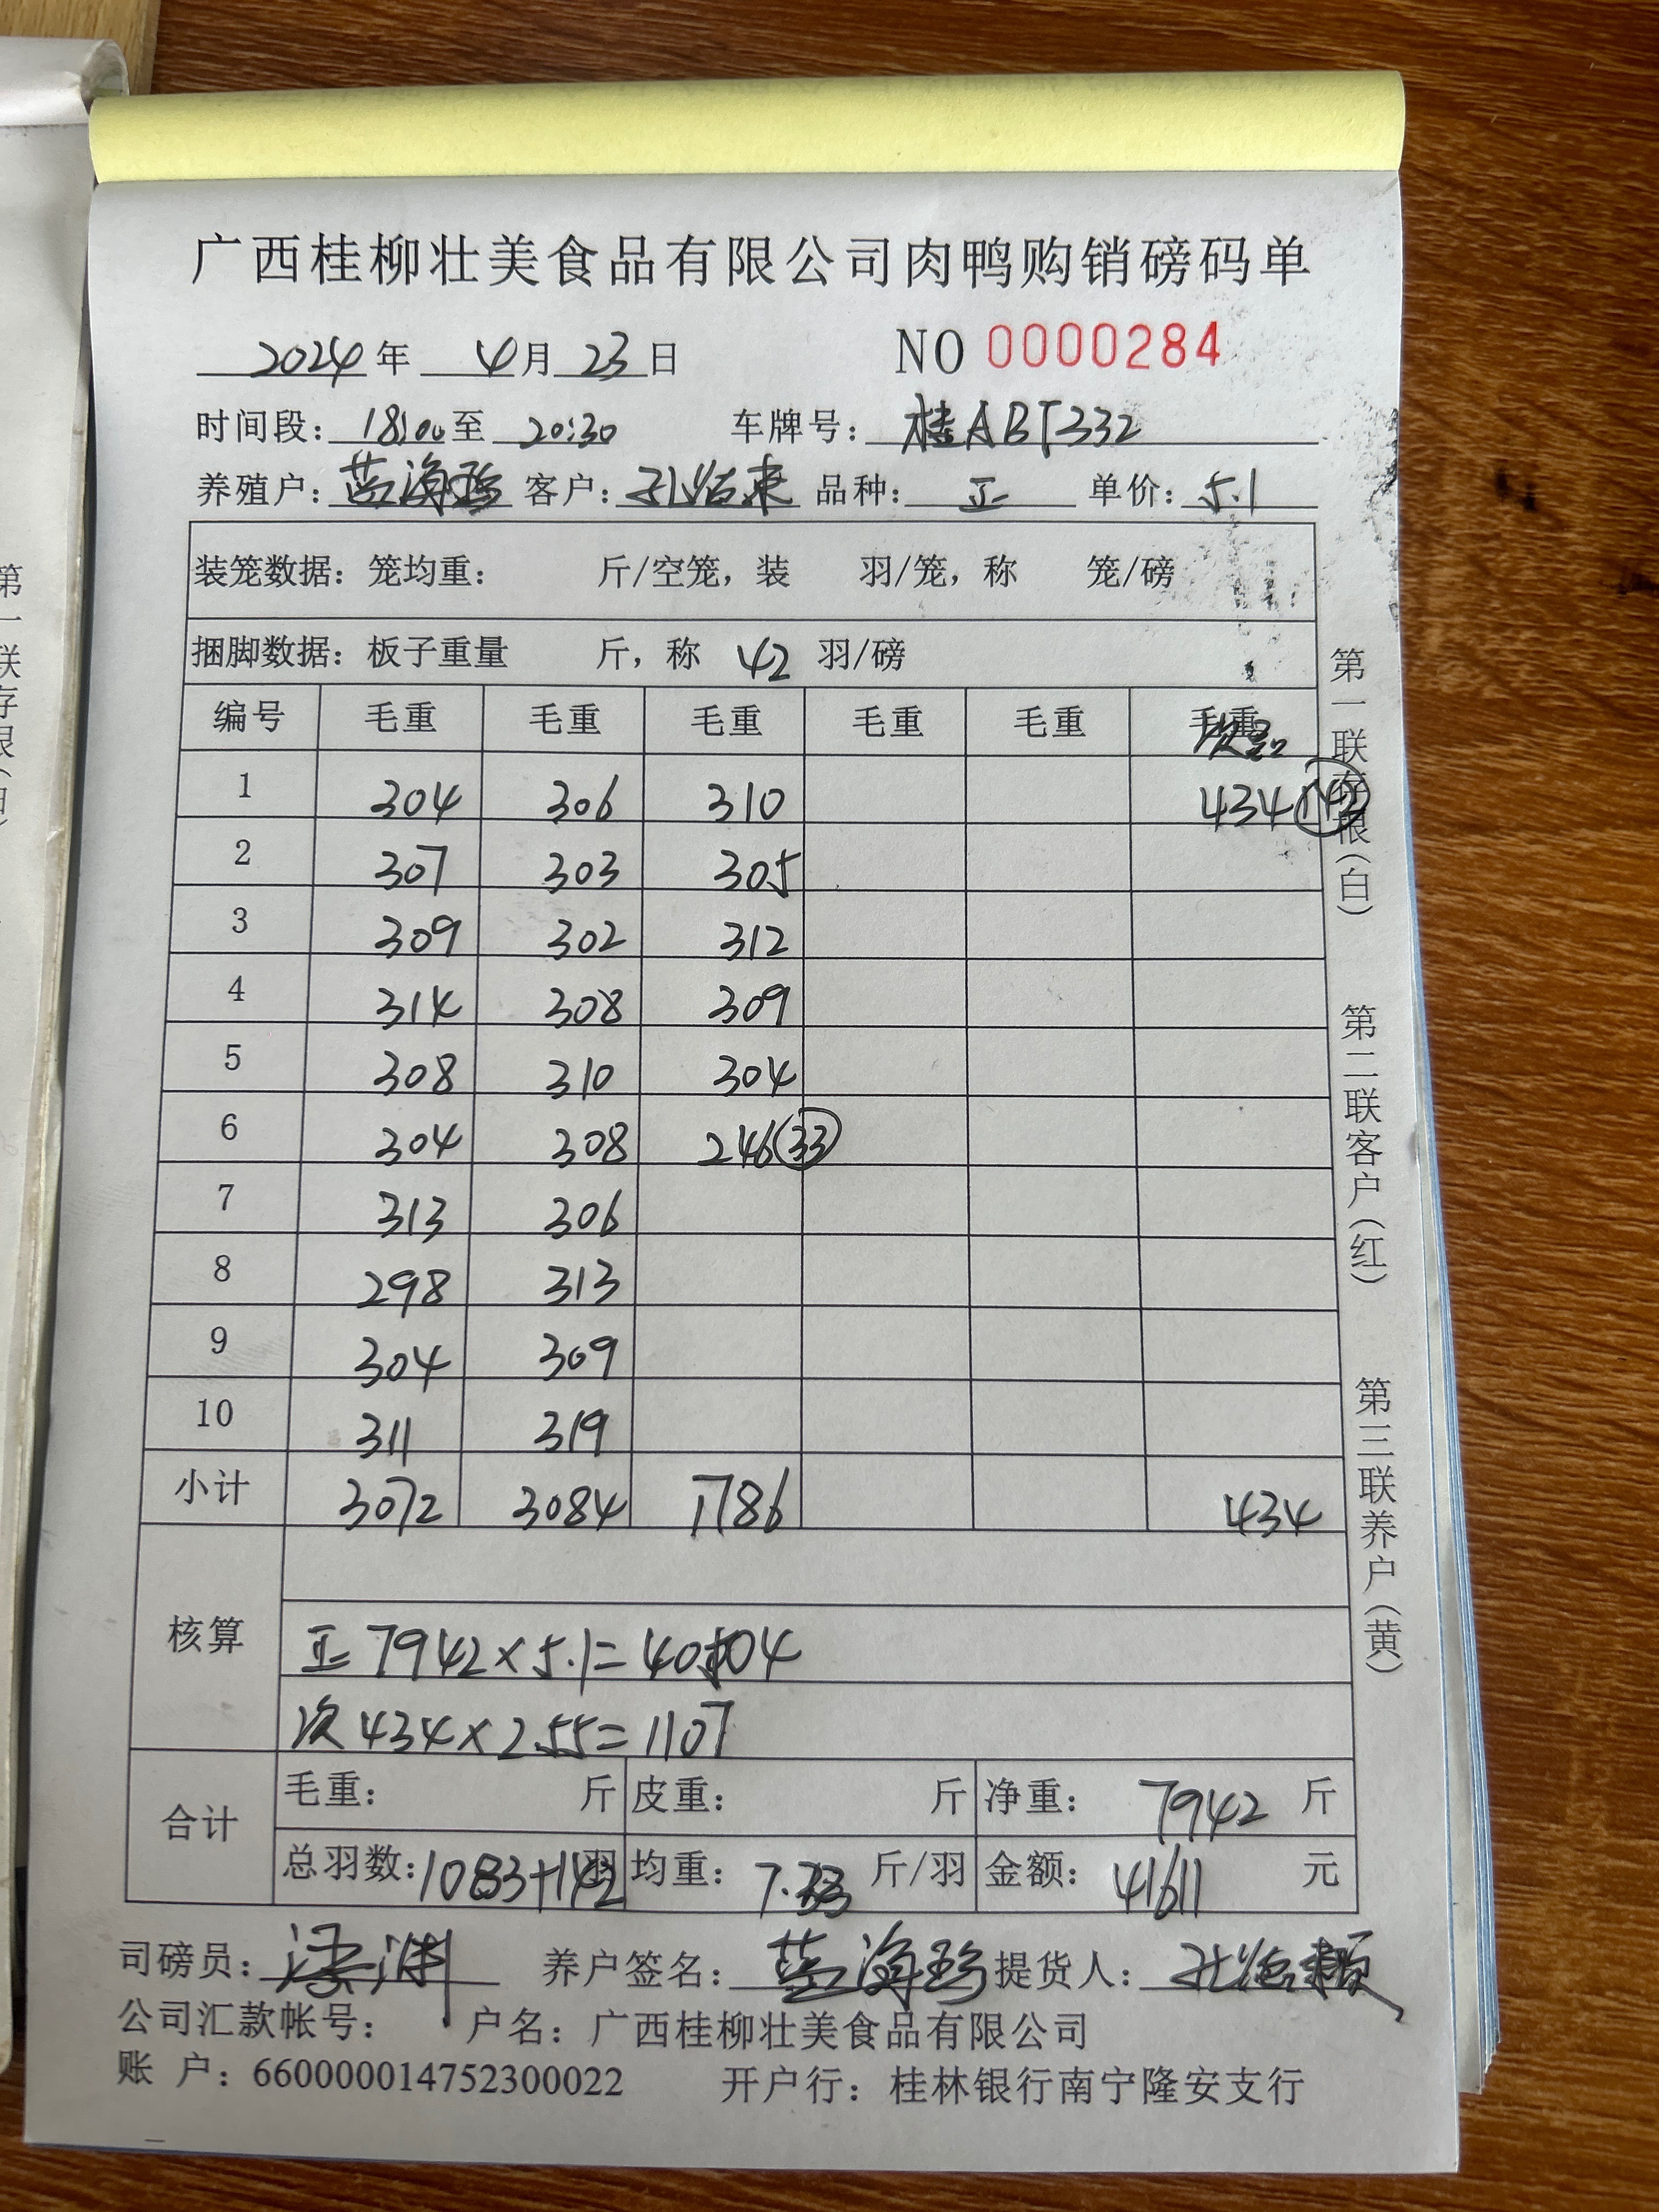 广西桂柳壮美食品有限公司肉鸭购销磅码单
2024年 4月23日 NO 0000284
时间段：18:00至 20:30 车牌号：桂ABT332
养殖户：蓝海珍 客户： 品种：正 单价：5.1
装笼数据：笼均重： 斤/空笼，装 羽/笼，称 笼/磅
捆脚数据：板子重量 斤，称 42 羽/磅
编号 毛重 毛重 毛重 毛重 毛重 毛重 次品
1 304 306 310 434 142
2 307 303 305
3 309 302 312
4 314 308 309
5 308 310 304
6 304 308 246 33
7 313 306
8 298 313
9 304 309
10 311 319
小计 3072 3084 1786 434
核算
正 7942×5.1=40504
次 434×2.55=1107
合计 毛重： 斤 皮重： 斤 净重：7942 斤
总羽数：1083+142羽 均重：7.33 斤/羽 金额：41611 元
司磅员： 养户签名：蓝海珍 提货人：
公司汇款帐号： 户名：广西桂柳壮美食品有限公司
账 户：660000014752300022 开户行：桂林银行南宁隆安支行
第一联存根（白）
第二联客户（红）
第三联养户（黄）
第一联存根（白）